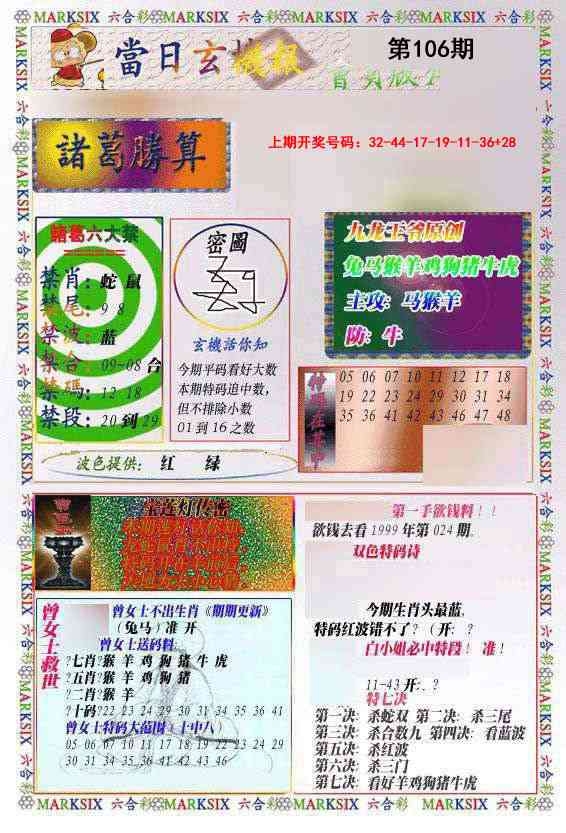 MARKSIX 六合彩 MARKSIX 六合彩 MARKSIX 六合彩 MARKSIX 六合彩
當日玄機報
第106期
諸葛勝算
上期开奖号码：32-44-17-19-11-36+28
諸葛六大禁
禁肖：蛇 鼠
禁尾：9 8
禁波：蓝
禁合：09-08 合
禁碼：12 18
禁段：20 到 29
密圖
玄機話你知
今期平码看好大数
本期特码追中数，
但不排除小数
01 到 16 之数
九龙王爷原创
兔马猴羊鸡狗猪牛虎
主攻：马猴羊
防：牛
05 06 07 10 11 12 17 18
19 22 23 24 29 30 31 34
35 36 41 42 43 46 47 48
波色提供： 红 绿
宝莲灯传密
第一手欲钱料！！
欲钱去看 1999 年第 024 期。
双色特码诗
今期生肖头最蓝，
特码红波错不了？（开：？
白小姐必中特段！ 准！
11-43 开：？
特七决
第一决：杀蛇双 第二决：杀三尾
第三决：杀合数九 第四决：看蓝波
第五决：杀红波
第六决：杀三门
第七决：看好羊鸡狗猪牛虎
曾女士救世
曾女士不出生肖《期期更新》
（兔马）准 开
曾女士送码料：
?七肖?猴 羊 鸡 狗 猪 牛 虎
?五肖?猴 羊 鸡 狗 猪
?二肖?猴 羊
?十码?22 23 24 29 30 31 34 35 36 41
曾女士特码大范围（十中八）
05 06 07 10 11 17 18 19 22 23 24 29
30 31 34 35 36 41 42 43 46
MARKSIX 六合彩 MARKSIX 六合彩 MARKSIX 六合彩 MARKSIX 六合彩